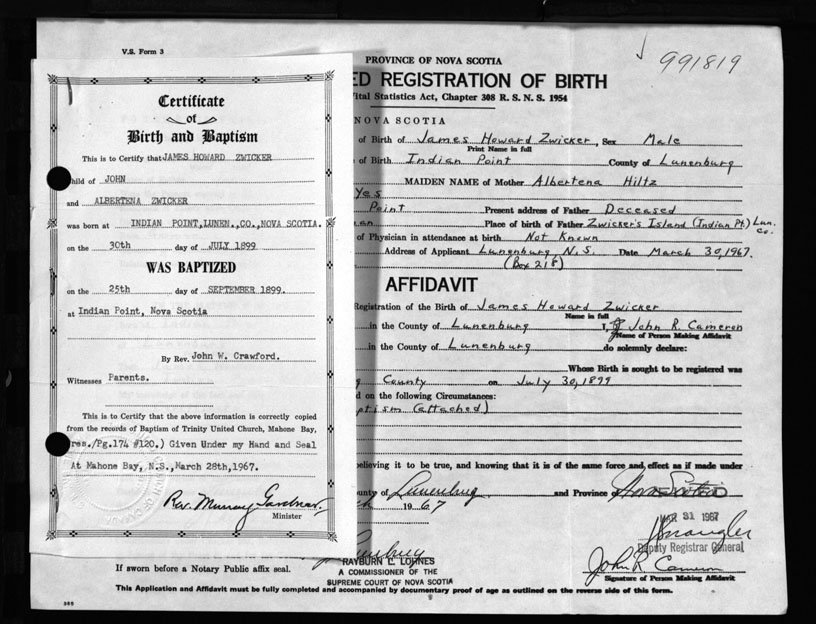 V.S. Form 3
991819
PROVINCE OF NOVA SCOTIA
ED REGISTRATION OF BIRTH
Vital Statistics Act, Chapter 308 R. S. N. S. 1954
NOVA SCOTIA
of Birth of James Howard Zwicker, Sex Male
Print Name in full
of Birth Indian Point County of Lunenburg
MAIDEN NAME of Mother Albertena Hiltz
Yes
Point Present address of Father Deceased
Place of birth of Father Zwicker's Island (Indian Pt.) Lun. Co.
of Physician in attendance at birth Not Known
Address of Applicant Lunenburg N.S. Date March 30, 1967.
(Box 218)
AFFIDAVIT
Registration of the Birth of James Howard Zwicker
Name in full
in the County of Lunenburg I, John R. Cameron
Name of Person Making Affidavit
in the County of Lunenburg do solemnly declare:
Whose Birth is sought to be registered was
County on July 30, 1899
d on the following Circumstances:
ptism (attached)
believing it to be true, and knowing that it is of the same force and effect as if made under
ounty of Lunenburg and Province of Nova Scotia
1967
MAR 31 1967
Deputy Registrar General
RAYBURN L. LOHNES
A COMMISSIONER OF THE
SUPREME COURT OF NOVA SCOTIA
John R Cameron
Signature of Person Making Affidavit
If sworn before a Notary Public affix seal.
This Application and Affidavit must be fully completed and accompanied by documentary proof of age as outlined on the reverse side of this form.
Certificate
of
Birth and Baptism
This is to Certify that JAMES HOWARD ZWICKER
Child of JOHN
and ALBERTENA ZWICKER
was born at INDIAN POINT, LUNEN., CO., NOVA SCOTIA.
on the 30th day of JULY 1899
WAS BAPTIZED
on the 25th day of SEPTEMBER 1899.
at Indian Point, Nova Scotia
By Rev. John W. Crawford.
Witnesses Parents.
This is to Certify that the above information is correctly copied
from the records of Baptism of Trinity United Church, Mahone Bay,
res./Pg.174 #120.) Given Under my Hand and Seal
At Mahone Bay, N.S., March 28th, 1967.
Rev. Murray Gardner.
Minister